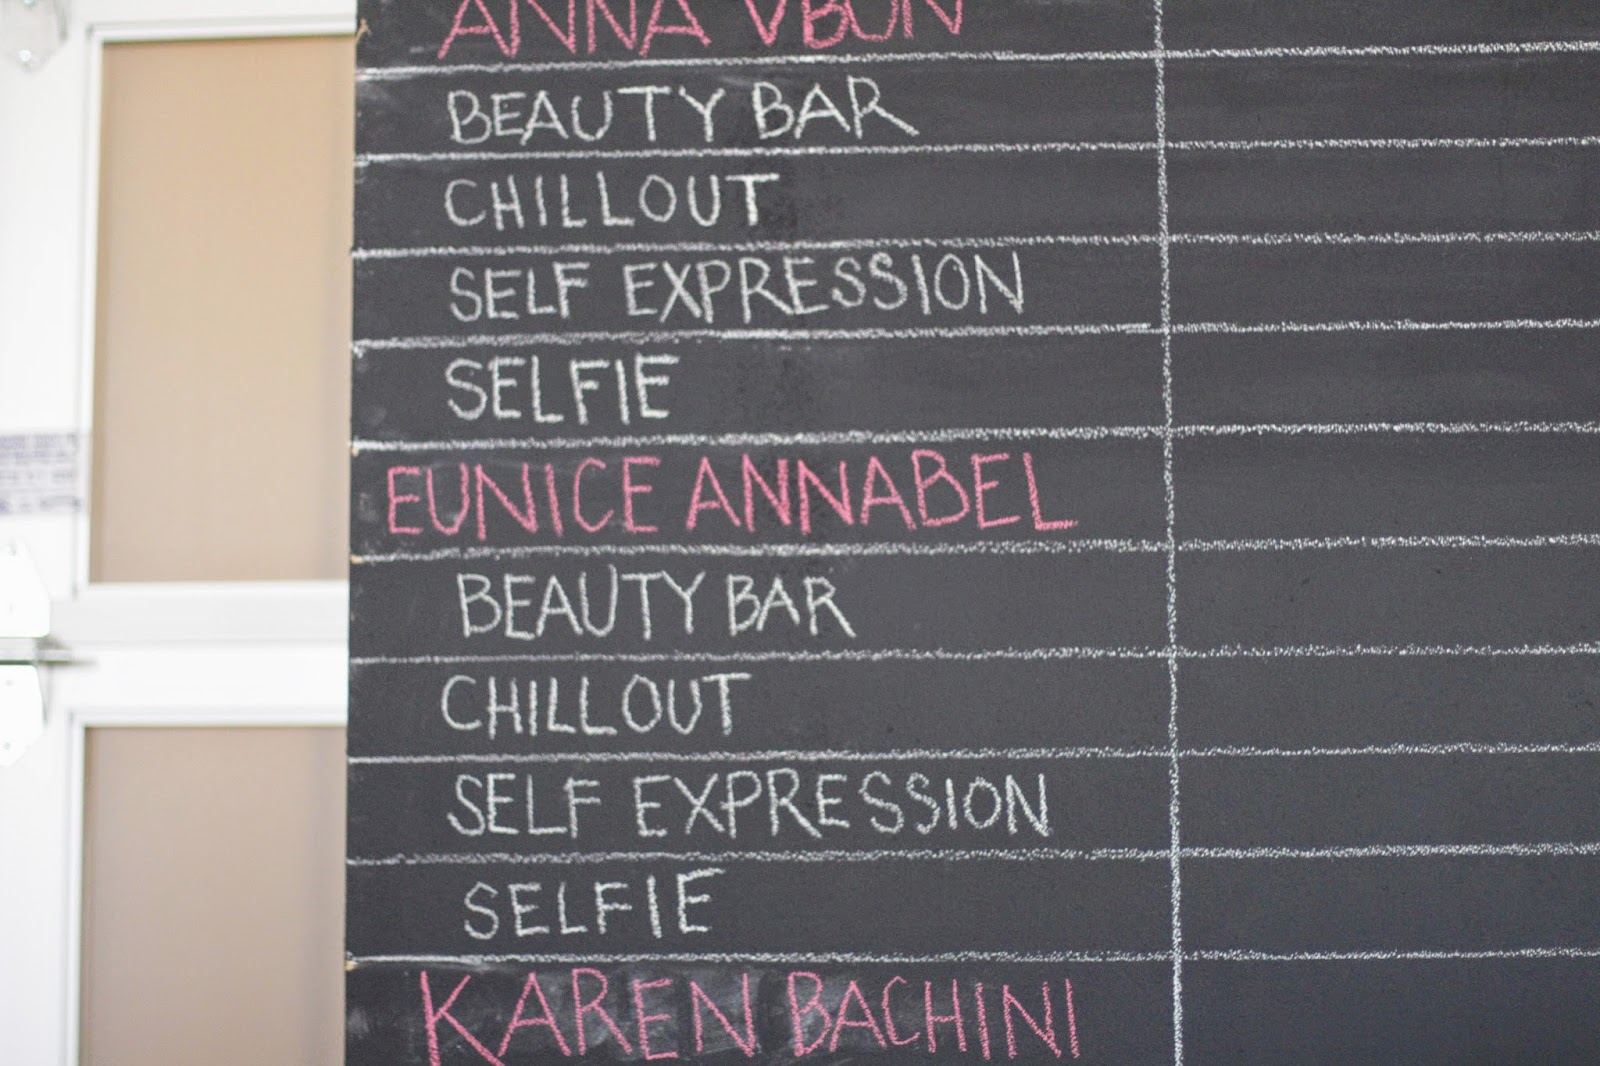 ANNA VBON
BEAUTY BAR
CHILLOUT
SELF EXPRESSION
SELFIE
EUNICE ANNABEL
BEAUTY BAR
CHILLOUT
SELF EXPRESSION
SELFIE
KAREN BACHINI